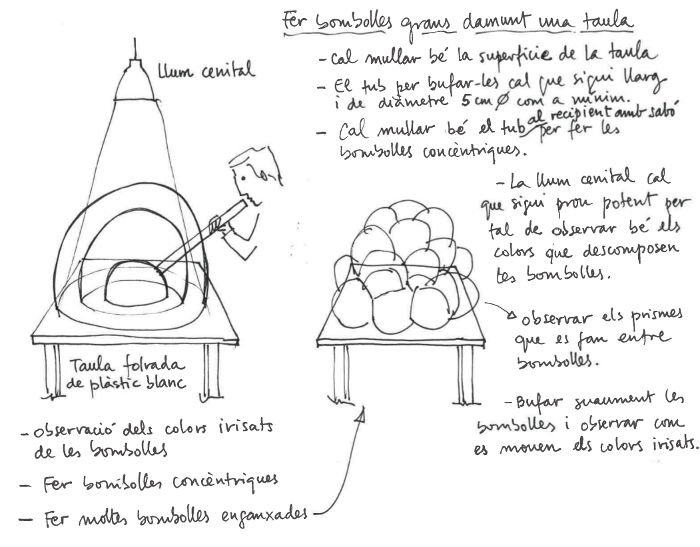 Fer bombolles grans damunt una taula
- Cal mullar bé la superfície de la taula
- El tub per bufar-les cal que sigui llarg
i de diàmetre 5 cm Ø com a mínim.
- Cal mullar bé el tub al recipient amb sabó per fer les
bombolles concèntriques.
Llum cenital
- La llum cenital cal
que sigui prou potent per
tal de observar bé els
colors que descomposen
les bombolles.
observar els prismes
que es fan entre
bombolles.
- Bufar suaument les
bombolles i observar com
es mouen els colors irisats.
Taula folrada
de plàstic blanc
- Observació dels colors irisats
de les bombolles
- Fer bombolles concèntriques
- Fer moltes bombolles enganxades